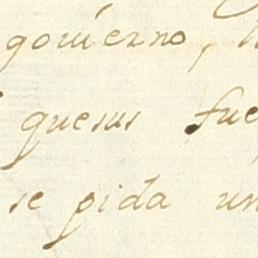 govierno,
quesus fue
se pida un